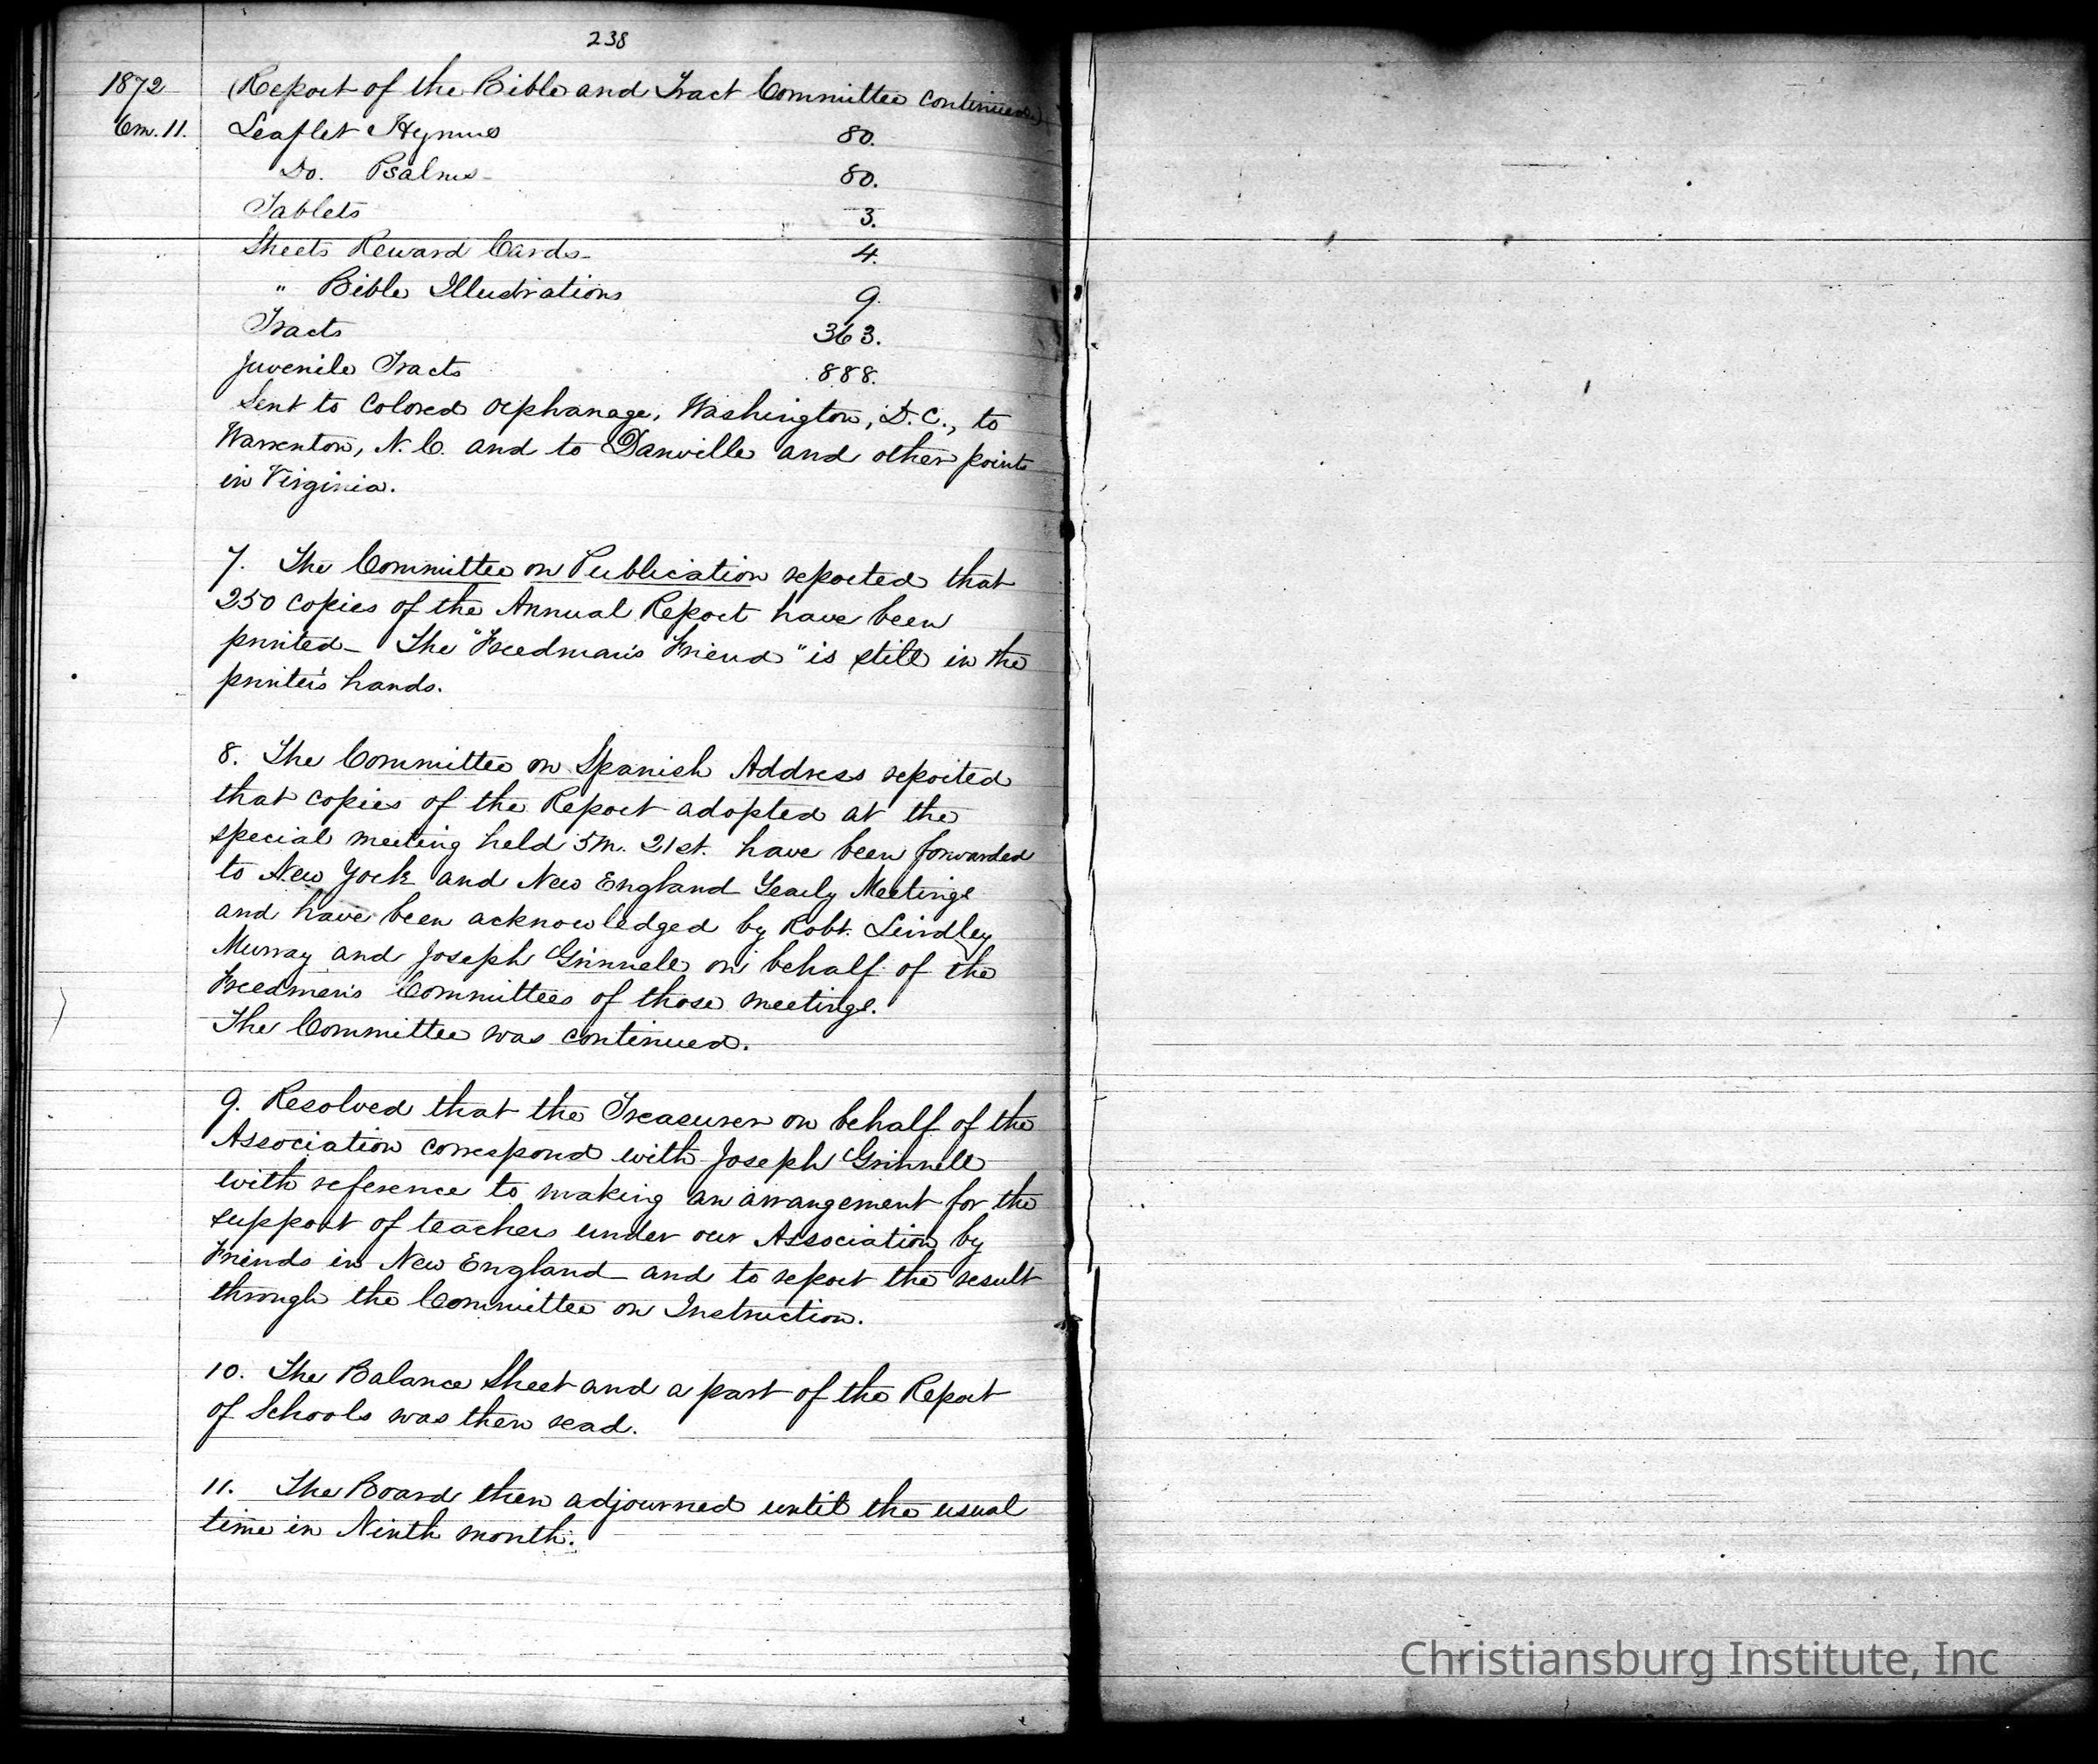 238
1872 (Report of the Bible and Tract Committee continued.)
6m. 11. Leaflet Hymns 80.
Do. Psalms 80.
Tablets 3.
Sheets Reward Cards 4.
" Bible Illustrations 9.
Tracts 363.
Juvenile Tracts 888.
Sent to Colored Orphanage, Washington, D.C., to
Warrenton, N.C. and to Danville and other points
in Virginia.
7. The Committee on Publication reported that
250 copies of the Annual Report have been
printed - The "Freedman's Friend" is still in the
printer's hands.
8. The Committee on Spanish Address reported
that copies of the Report adopted at the
special meeting held 5m. 21st. have been forwarded
to New York and New England Yearly Meetings
and have been acknowledged by Robt. Lindley
Murray and Joseph Grinnell on behalf of the
Freedmen's Committees of those meetings.
The Committee was continued.
9. Resolved that the Treasurer on behalf of the
Association correspond with Joseph Grinnell
with reference to making an arrangement for the
support of teachers under our Association by
Friends in New England and to report the result
through the Committee on Instruction.
10. The Balance Sheet and a part of the Report
of Schools was then read.
11. The Board then adjourned until the usual
time in Ninth month.
Christiansburg Institute, Inc